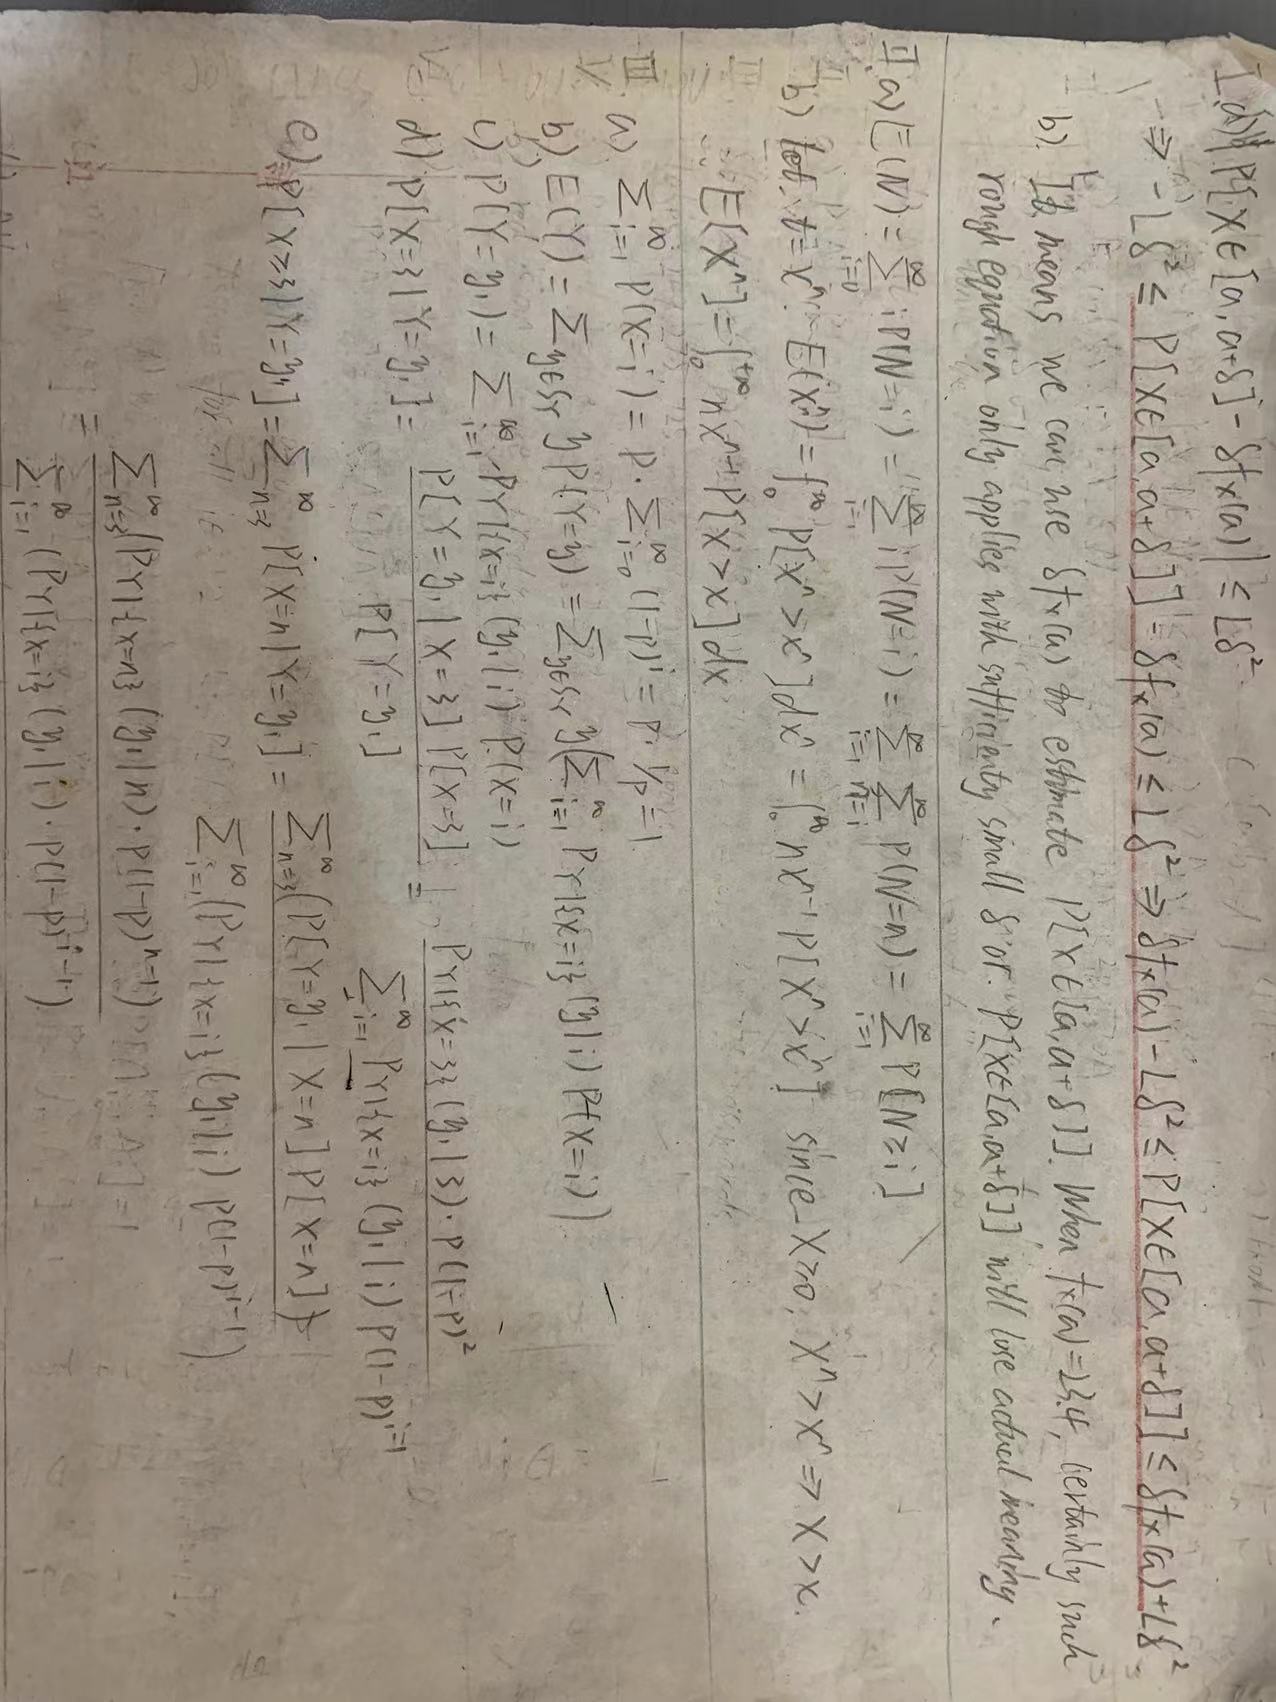 I. a) |P[X∈[a, a+δ] - δfx(a)| ≤ Lδ²
⇒ -Lδ² ≤ P[X∈[a, a+δ]] - δfx(a) ≤ Lδ² ⇒ δfx(a) - Lδ² ≤ P[X∈[a, a+δ]] ≤ δfx(a) + Lδ²
b). It means we can use δfx(a) to estimate P[X∈[a, a+δ]]. When fx(a)=23.4, certainly such
rough equation only applies with sufficienty small δ or P[X∈[a, a+δ]] will lose actual meaning.
II. a) E(N) = ∑_{i=0}^∞ iP(N=i) = ∑_{i=1}^∞ iP(N=i) = ∑_{i=1}^∞ ∑_{n=i}^∞ P(N=n) = ∑_{i=1}^∞ P[N≥i]
b) let t=xⁿ. E(Xⁿ) = ∫_0^∞ P[Xⁿ>xⁿ]dxⁿ = ∫_0^∞ nxⁿ⁻¹ P[Xⁿ>xⁿ] since X≥0, Xⁿ>xⁿ ⇒ X>x.
E[Xⁿ] = ∫_0^{+∞} nxⁿ⁻¹ P[X>x]dx
III. a) ∑_{i=1}^∞ P(X=i) = p·∑_{i=0}^∞ (1-p)^i = p·1/p = 1.
b) E(Y) = ∑_{y∈S_Y} yP(Y=y) = ∑_{y∈S_Y} y(∑_{i=1}^∞ P_{Y|{X=i}}(y|i) P(X=i)).
c) P(Y=y₁) = ∑_{i=1}^∞ P_{Y|{X=i}}(y₁|i) P(X=i)
d) P[X=3|Y=y₁] = P[Y=y₁|X=3]P[X=3] / P[Y=y₁] = P_{Y|{X=3}}(y₁|3)·p(1-p)² / ∑_{i=1}^∞ P_{Y|{X=i}}(y₁|i) p(1-p)^{i-1}
e) P[X≥3|Y=y₁] = ∑_{n=3}^∞ P[X=n|Y=y₁] = ∑_{n=3}^∞ (P[Y=y₁|X=n]P[X=n]) / ∑_{i=1}^∞ (P_{Y|{X=i}}(y₁|i) p(1-p)^{i-1})
= ∑_{n=3}^∞ (P_{Y|{X=n}}(y₁|n)·p(1-p)^{n-1}) / ∑_{i=1}^∞ (P_{Y|{X=i}}(y₁|i)·p(1-p)^{i-1})